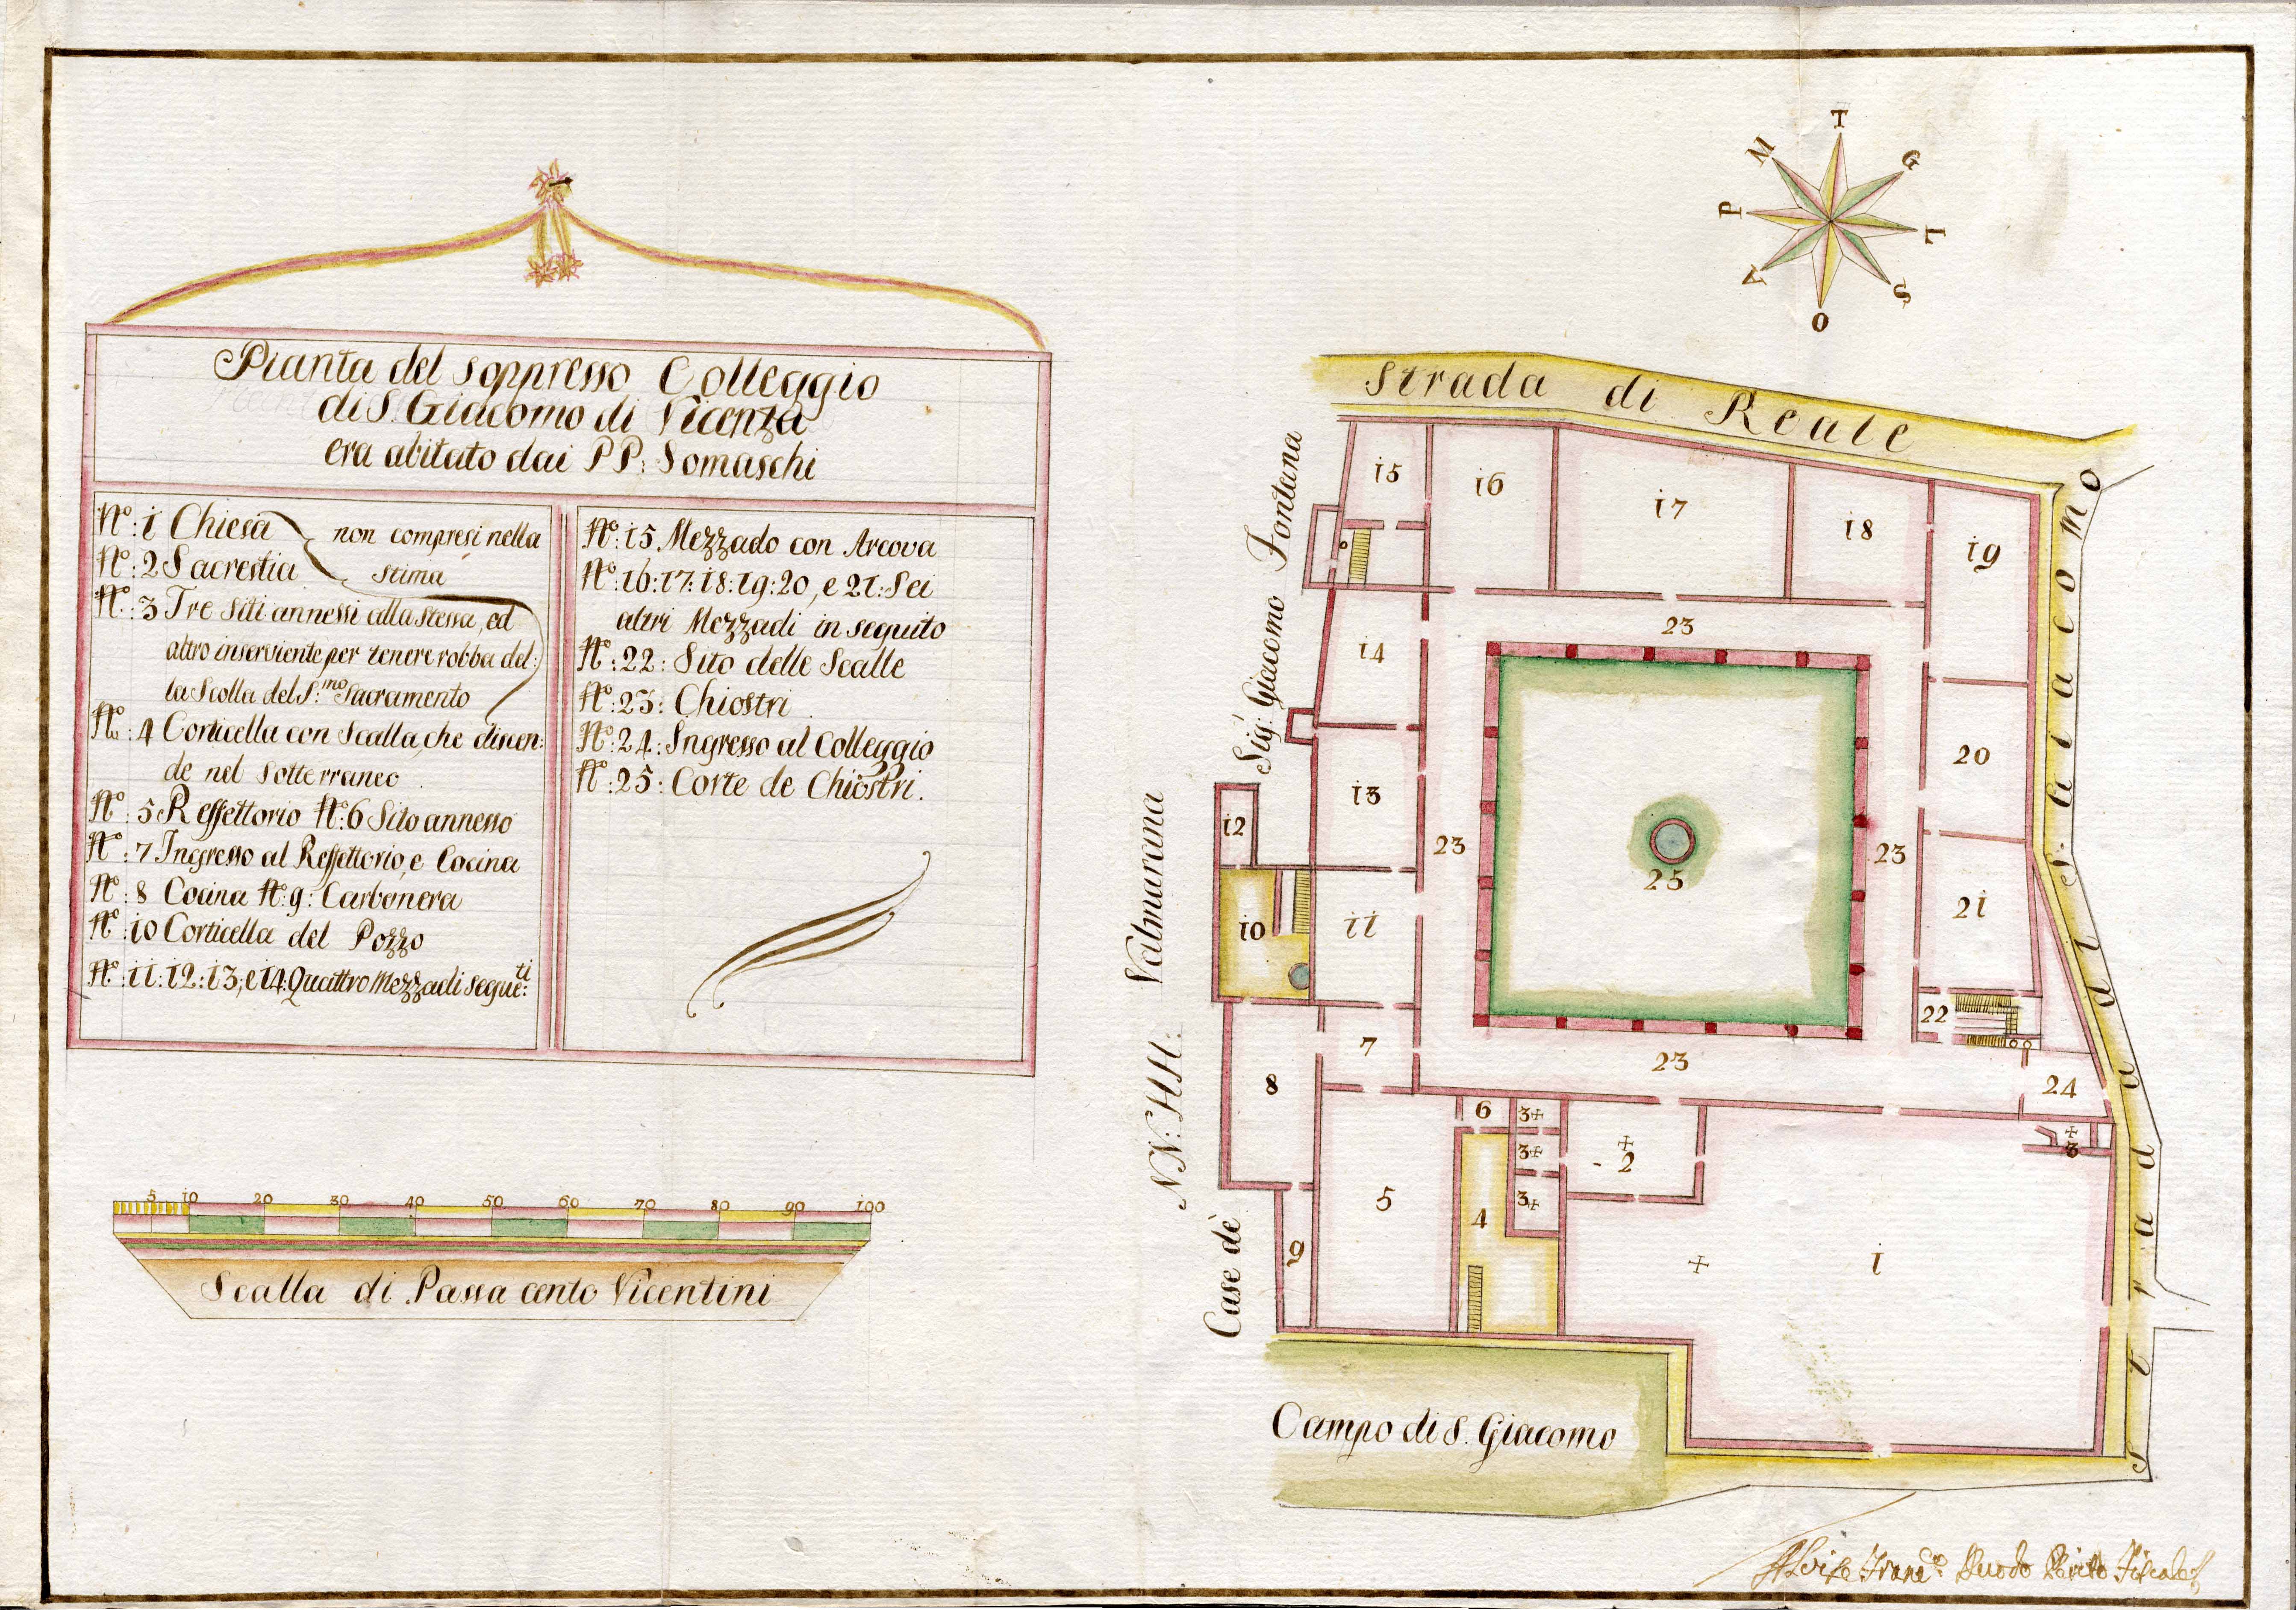 Pianta del soppresso Colleggio
di S. Giacomo di Vicenza
era abitato dai PP: Somaschi
Nº: 1 Chiesa
non compresi nella
Nº: 2 Sacrestia
stima
Nº: 3 Tre Siti annessi alla stessa, ed
altro inserviente per tenere robba del:
la Scolla del S:mo Sacramento
Nº: 4 Corticella con Scalla, che discen:
de nel Sotterraneo
Nº: 5 Reffettorio Nº: 6 Sito annesso
Nº: 7 Ingresso al Reffettorio, e Cocina
Nº: 8 Cocina Nº: 9: Carbonera
Nº: 10 Corticella del Pozzo
Nº: 11: 12: 13; e 14: Quattro Mezzadi segue:ti
Nº: 15 Mezzado con Arcova
Nº: 16: 17: 18: 19: 20, e 21: Sei
altri Mezzadi in seguito
Nº: 22: Sito delle Scalle
Nº: 23: Chiostri
Nº: 24: Ingresso al Colleggio
Nº: 25: Corte de Chiostri.
5 10 20 30 40 50 60 70 80 90 100
Scalla di Passa cento Vicentini
T
M G
P L
A S
O
Strada di Reale
Strada da al S: Giacomo
Sig: Giacomo Fontana
Case dè NN: HH: Valmarana
15 16 17 18 19
23
14
20
12 13 23 25 23
10 11 21
22
8 7 23 24
6 3
2 3
3
5 4 3
9 1
Campo di S. Giacomo
Alvise Franc:º Duodo Perito Fiscal